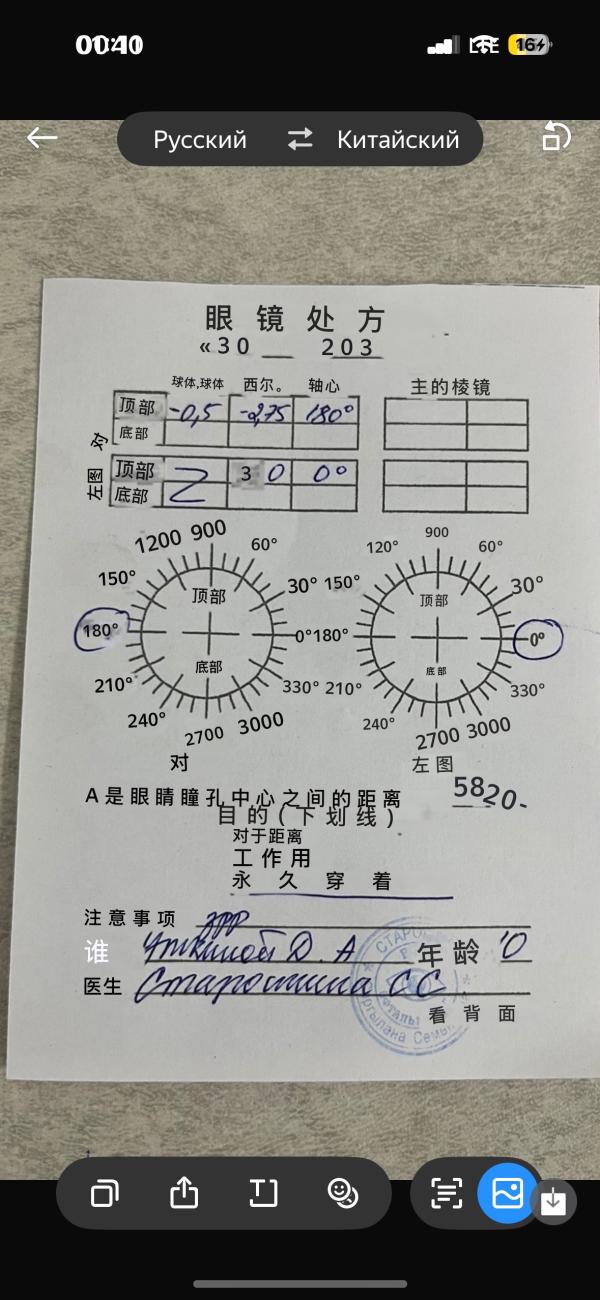 01:40 LTE 16
Русский Китайский
眼镜处方
«30 __ 203
球体,球体 西尔。 轴心 主的棱镜
对 顶部 -0,5 -2,75 180°
底部
左图 顶部 30 0°
底部
1200 900 60° 120° 900 60°
150° 30° 150° 30°
顶部 顶部
180° 0° 180° 0°
底部 底部
210° 330° 210° 330°
240° 2700 3000 240° 2700 3000
对 左图
A是眼睛瞳孔中心之间的距离 5820-
目的(下划线)
对于距离
工作用
永久穿着
注意事项
谁 Уткиной Д. А 年龄
医生 Старостина СС
看背面